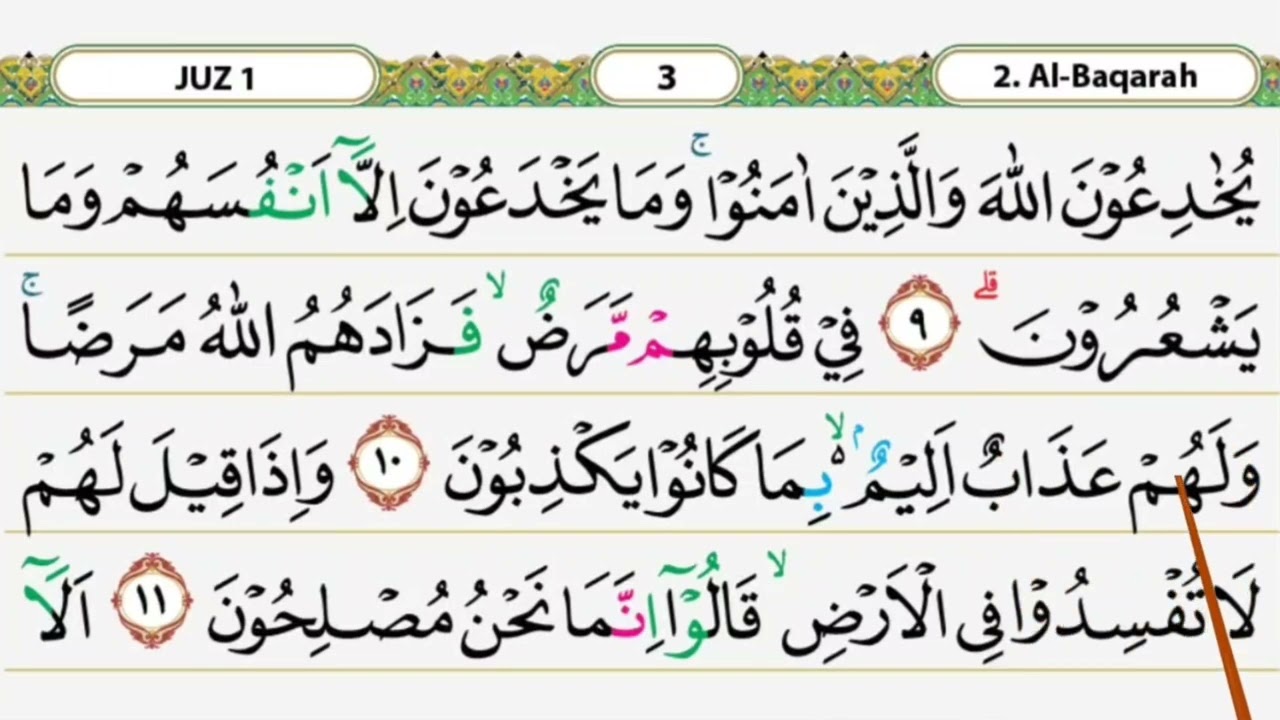 JUZ 1 3 2. Al-Baqarah
يُخٰدِعُوْنَ اللّٰهَ وَالَّذِيْنَ اٰمَنُوْا ۚ وَمَا يَخْدَعُوْنَ اِلَّآ اَنْفُسَهُمْ وَمَا
يَشْعُرُوْنَ ۗ ٩ فِيْ قُلُوْبِهِمْ مَّرَضٌ ۙ فَزَادَهُمُ اللّٰهُ مَرَضًا ۚ
وَلَهُمْ عَذَابٌ اَلِيْمٌ ۢ ۙ بِمَا كَانُوْا يَكْذِبُوْنَ ١٠ وَاِذَا قِيْلَ لَهُمْ
لَا تُفْسِدُوْا فِى الْاَرْضِ ۙ قَالُوْٓا اِنَّمَا نَحْنُ مُصْلِحُوْنَ ١١ اَلَآ